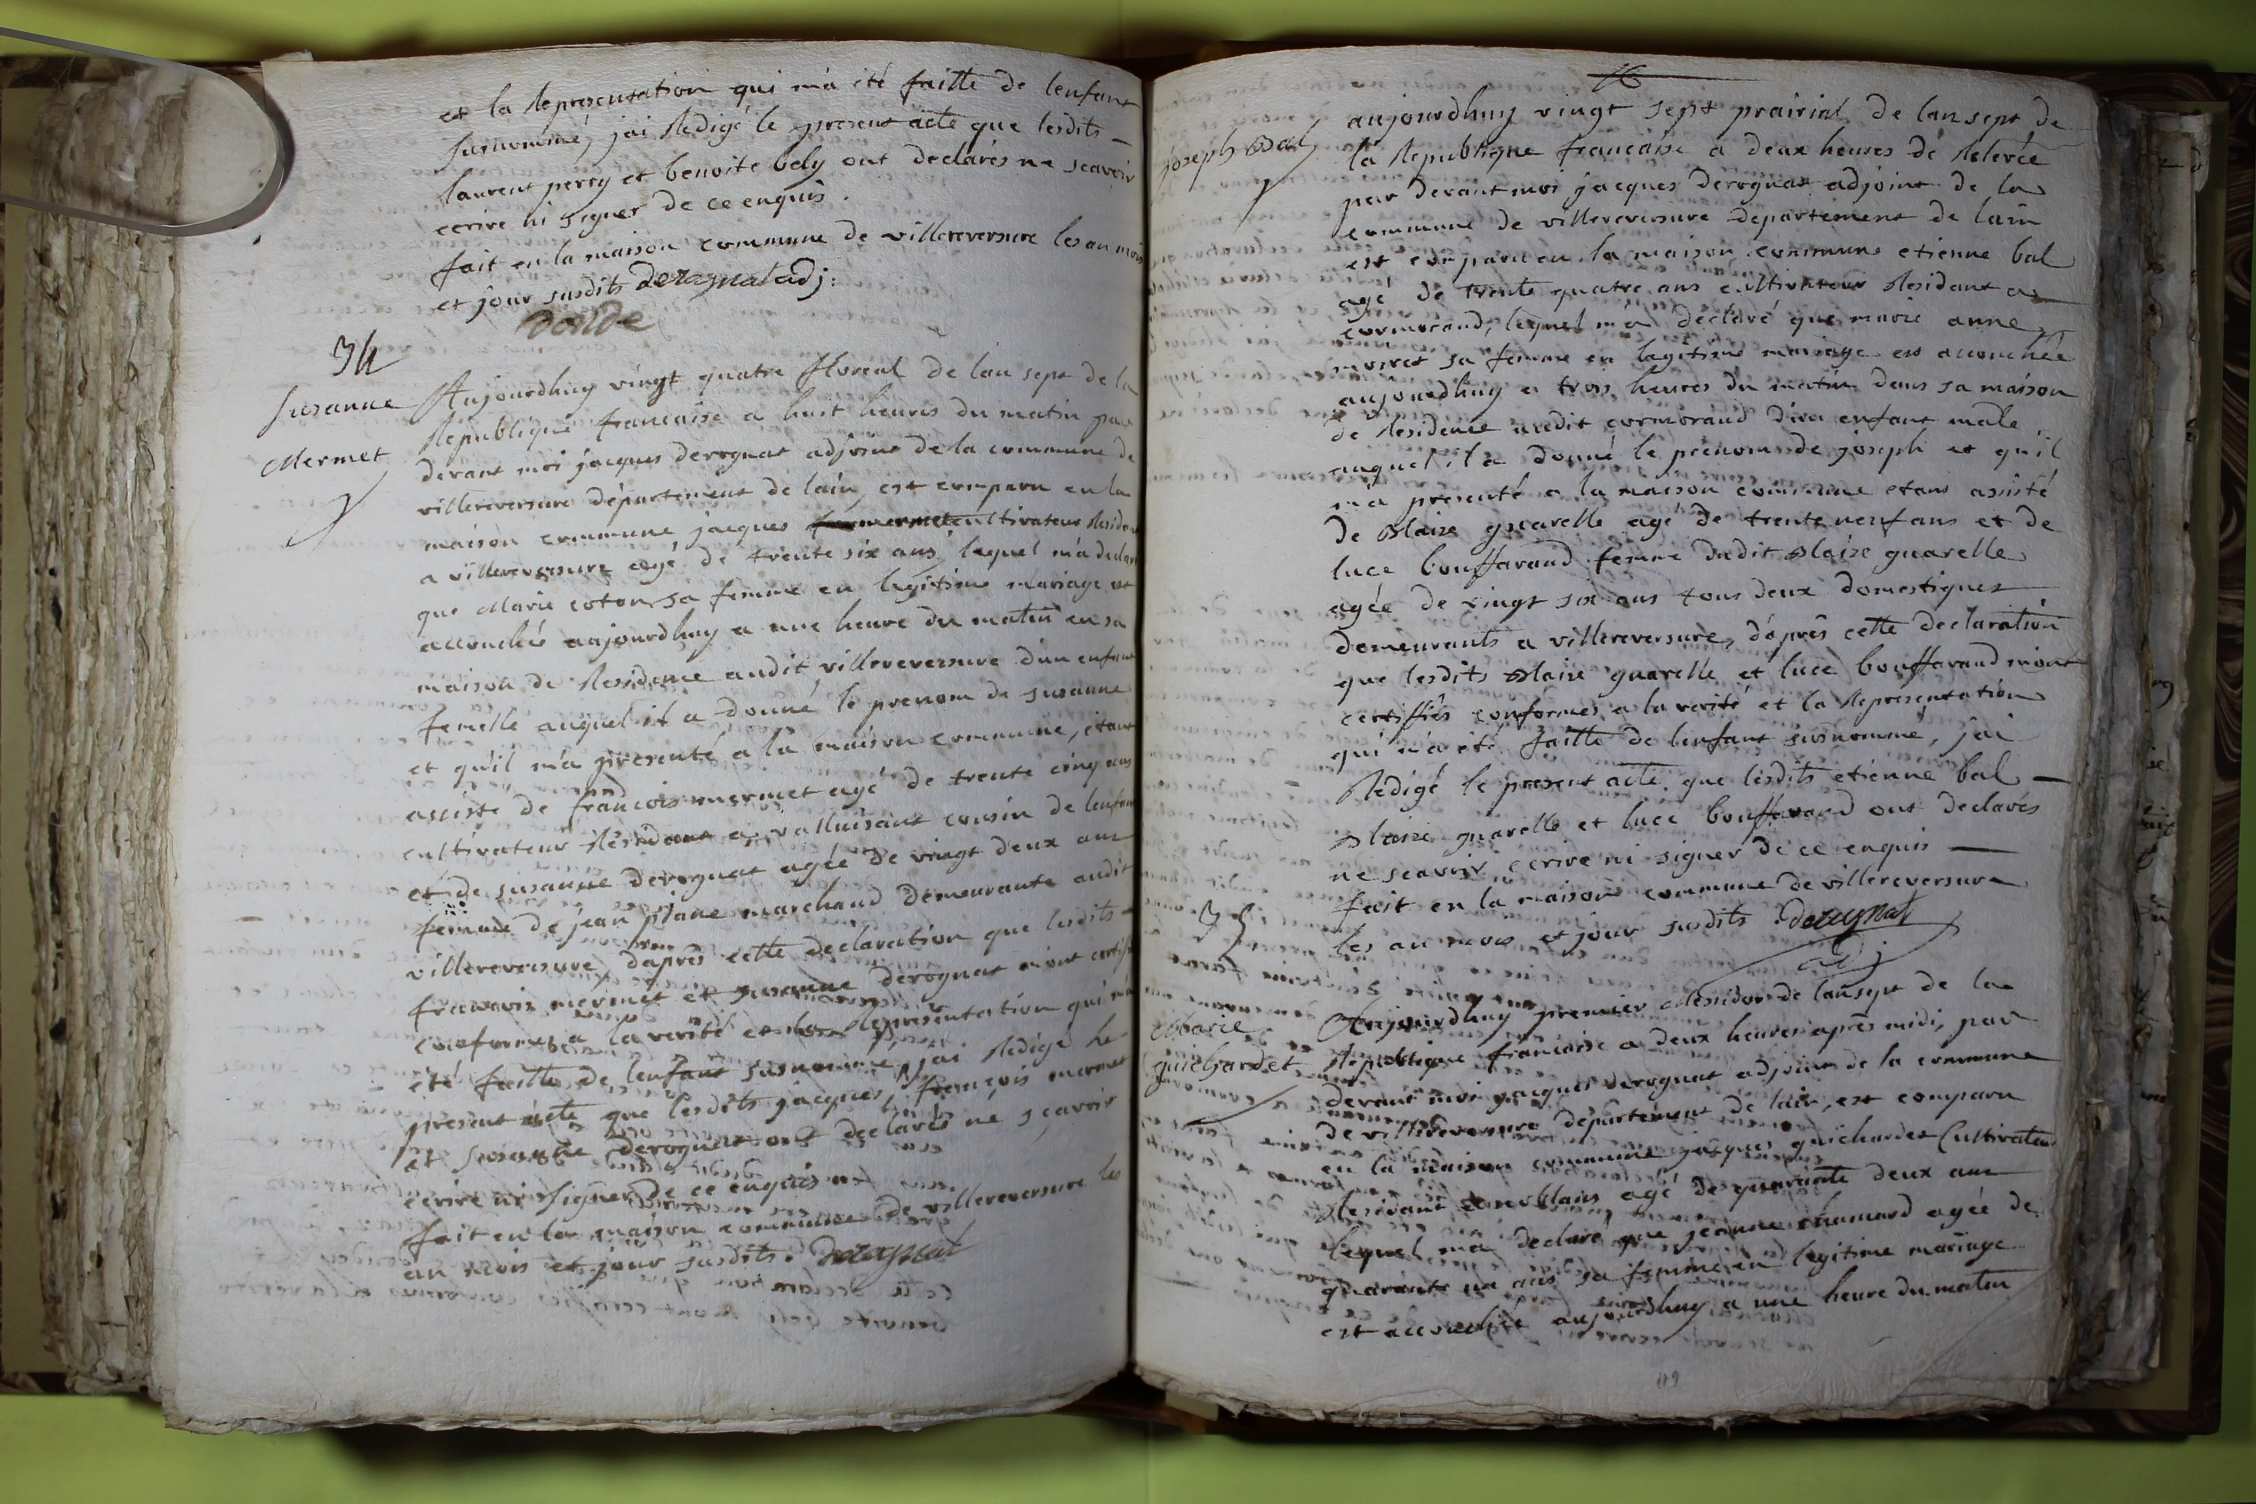 et la Representation qui m'a été faitte de lenfant
susnommé, jai Redigé le present acte que lesdits
laurent perry et benoite bely ont declarés ne scavoir
ecrire ni signer de ce enquis.
fait en la maison commune de villereversure les an mois
et jour susdits derognat adj:
34
Susanne
Mermet
Aujourdhuy vingt quatre floreal de lan sept de la
Republique francaise a huit heures du matin par
devant moi jacques derognat adjoint de la commune de
villereversure département de lain, est comparu en la
maison commune jacques mermet cultivateur Residant
a villereversure agé de trente six ans, lequel m'a declaré
que Marie coton sa femme en legitime mariage est
accouchée aujourdhuy a une heure du matin en sa
maison de Residence audit villereversure dun enfant
femelle auquel il a donné le prenom de susanne
et qu'il m'a presenté a la maison commune, etant
assisté de francois mermet agé de trente cinq ans
cultivateur Résidant a valluisant cousin de lenfant
et de susanne derognat agée de vingt deux ans
femme de jean plane marchand demeurante audit
villereversure, daprês cette declaration que lesdits
francois mermet et susanne derognat m'ont certifié
conforme a la verité et la Representation qui m'a
été faitte de lenfant susnommé, jai Redigé le
present acte que lesdits jacques, françois mermet
et susanne derognat ont declarés ne sçavoir
ecrire ni signer de ce enquis
fait en la maison commune de villereversure les
an mois et jour susdits. derognat
joseph Bal
aujourdhuy vingt sept prairial de lan sept de
la Republique francaise a deux heures de Relevée
par devant moi jacques derognat adjoint de la
commune de villereversure departement de lain
est comparu en la maison commune etienne bal
agé de trente quatre ans cultivateur Residant a
cormorand, lequel m'a declaré que marie anne
moiret sa femme en legitime mariage est accouchée
aujourdhuy a trois heures du matin dans sa maison
de Residence audit cormorand d'un enfant male
auquel il a donné le prénom de joseph et qu'il
m'a presenté a la maison commune etant assisté
de Blaise guarelle agé de trente neuf ans et de
luce bouffarand femme dudit Blaize guarelle
agée de vingt six ans tous deux domestiques
demeurants a villereversure, d'aprês cette declaration
que lesdits Blaise guarelle et luce bouffarand m'ont
certiffiês conformes a la verité et la Représentation
qui m'a été faitte de lenfant susnommé, jai
Redigé le present acte que lesdits etienne bal
Blaise guarelle et luce bouffarand ont declarés
ne scavoir ecrire ni signer de ce enquis
fait en la maison commune de villereversure
les an mois et jour susdits. derognat
adj
35
Marie
guichardet
Aujourdhuy premier Messidor de lan sept de la
Republique francaise a deux heures aprês midi, par
devant moi jacques derognat adjoint de la commune
de villereversure département de lain, est comparu
en la maison commune jacques guichardet Cultivateur
Residant a noblans agé de quarante deux ans
lequel m'a declaré que jeanne chamard agée de
quarante un ans sa femme en legitime mariage
est accouchée aujourdhuy a une heure du matin